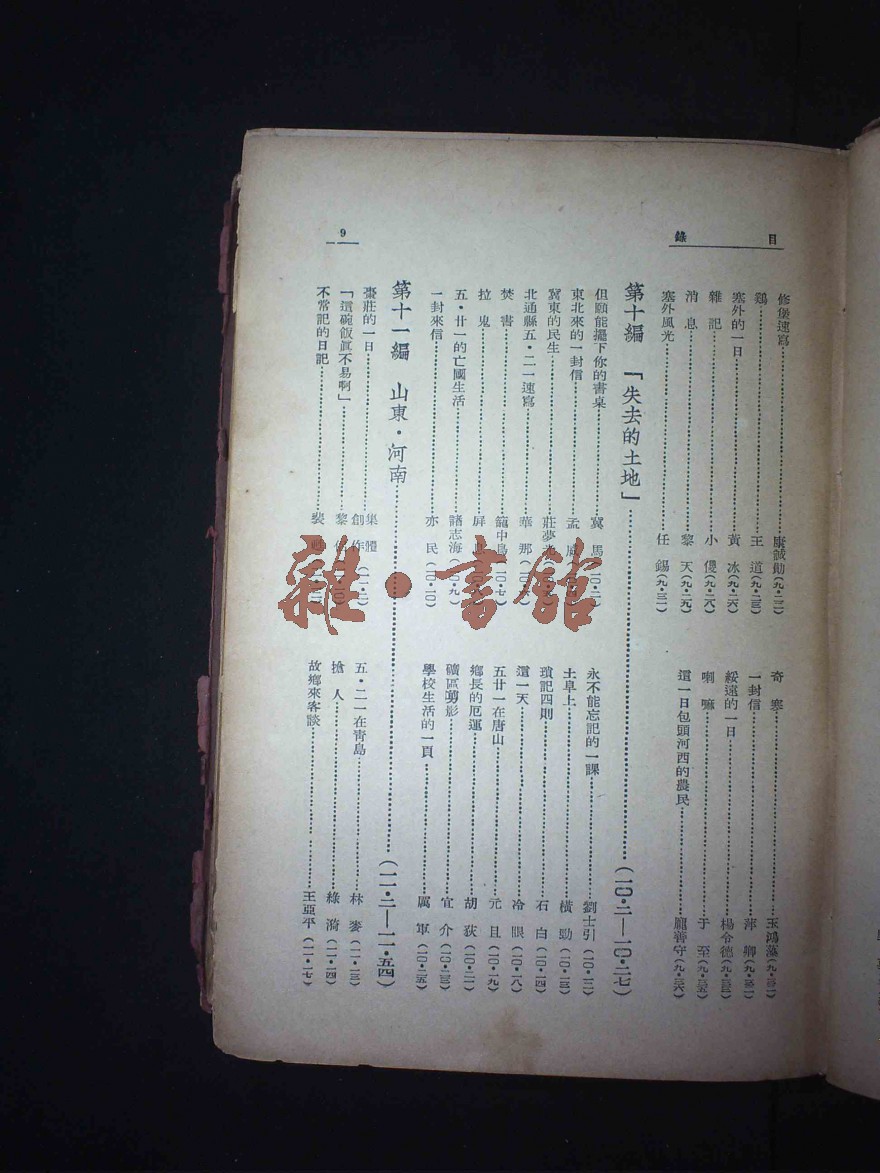 目 錄
9
修堡速寫……康誠勛(九·二二)
鷄……王 道(九·二三)
塞外的一日……黃 冰(九·二六)
雜 記……小(九·二八)
消 息……黎 天(九·二九)
塞外風光……任 錫(九·三一)
奇 寒……玉鴻藻
一封信……萍 卿
綏遠的一日……楊令德
喇 嘛……于 至(九·三五)
這一日包頭河西的農民……龐善守(九·三六)
第十編 「失去的土地」……(一〇·二—一〇·二七)
但願能擺下你的書桌……冀 馬(一〇·二)
東北來的一封信……孟
冀東的民生……莊夢
北通縣五·二一速寫……華 那
焚 書……籠中鳥(一〇·七)
拉 鬼……屏
五·廿一的亡國生活……諸志海(一〇·九)
一封來信……亦 民(一〇·一〇)
永不能忘記的一課……劉士引
土阜上……橫 勁
瑣記四則……石 白(一〇·一四)
這一天……冷 眼(一〇·一八)
五廿一在唐山……元 且(一〇·一九)
鄉長的厄運……胡 荻
礦區剪影……宜 介
學校生活的一頁……厲 軍(一〇·二五)
第十一編 山東·河南……(一一·二—一一·五四)
棗莊的一日……集體創作(一一·二)
「這碗飯眞不易啊」……黎
不常記的日記……裴
五·二一在靑島……林 麥(一一·一三)
搶 人……綠 漪(一一·一四)
故鄉來客談……王亞平(一一·一七)
雜·書館